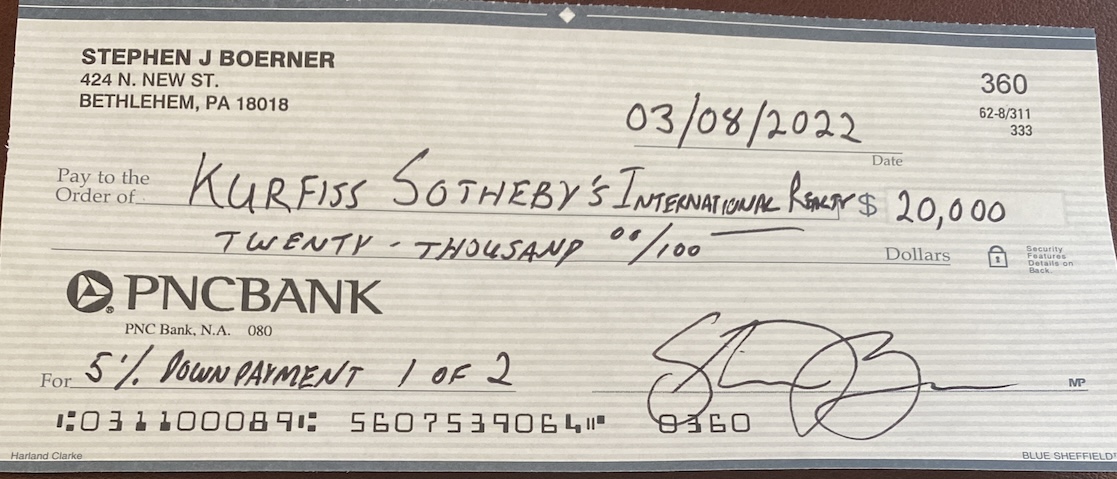 STEPHEN J BOERNER
424 N. NEW ST.
BETHLEHEM, PA 18018
360
62-8/311
333
03/08/2022
Date
Pay to the
Order of KURFISS SOTHEBY'S INTERNATIONAL REALTY $ 20,000
TWENTY - THOUSAND 00/100 Dollars
Security
Features
Details on
Back.
PNCBANK
PNC Bank, N.A. 080
For 5% DOWNPAYMENT 1 OF 2
MP
⑆031100089⑆ 5607539064⑈ 0360
Harland Clarke
BLUE SHEFFIELD